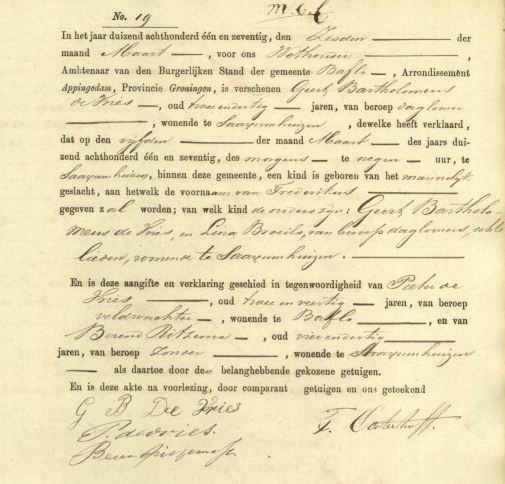 No. 19
In het jaar duizend achthonderd één en zeventig, den Zesden der
maand Maart, voor ons Wethouder,
Ambtenaar van den Burgerlijken Stand der gemeente Baflo, Arrondissement
Appingedam, Provincie Groningen, is verschenen Geert Bartholomeus
de Vries, oud twee en dertig jaren, van beroep daglooner
, wonende te Saaxumhuizen, dewelke heeft verklaard,
dat op den vijfden der maand Maart des jaars dui-
zend achthonderd één en zeventig, des morgens te negen uur, te
Saaxumhuizen, binnen deze gemeente, een kind is geboren van het mannelijk
geslacht, aan hetwelk de voornaam van Frederikus
gegeven zal worden; van welk kind de ouders zijn: Geert Bartholo-
meus de Vries, en Lina, van beroep daglooners, echte
lieden, wonende te Saaxumhuizen.
En is deze aangifte en verklaring geschied in tegenwoordigheid van Pieter de
Vries, oud twee en veertig jaren, van beroep
veldwachter, wonende te Baflo, en van
Berend Ritzema, oud vier en dertig
jaren, van beroep Zonder, wonende te Saaxumhuizen
als daartoe door den belanghebbende gekozene getuigen.
En is deze akte na voorlezing, door comparant getuigen en ons geteekend
G B De Vries
P. de vries.
F. Oosterhoff.